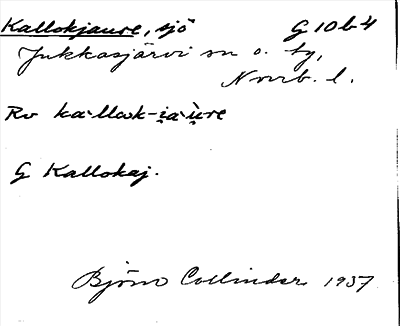 Kallokjaure, sjö G 10 b 4
Jukkasjärvi sn o. tg,
Norrb. l.
Rv ka·llɷk-i̯a·u̯re
G Kallokaj.
Björn Collinder 1937